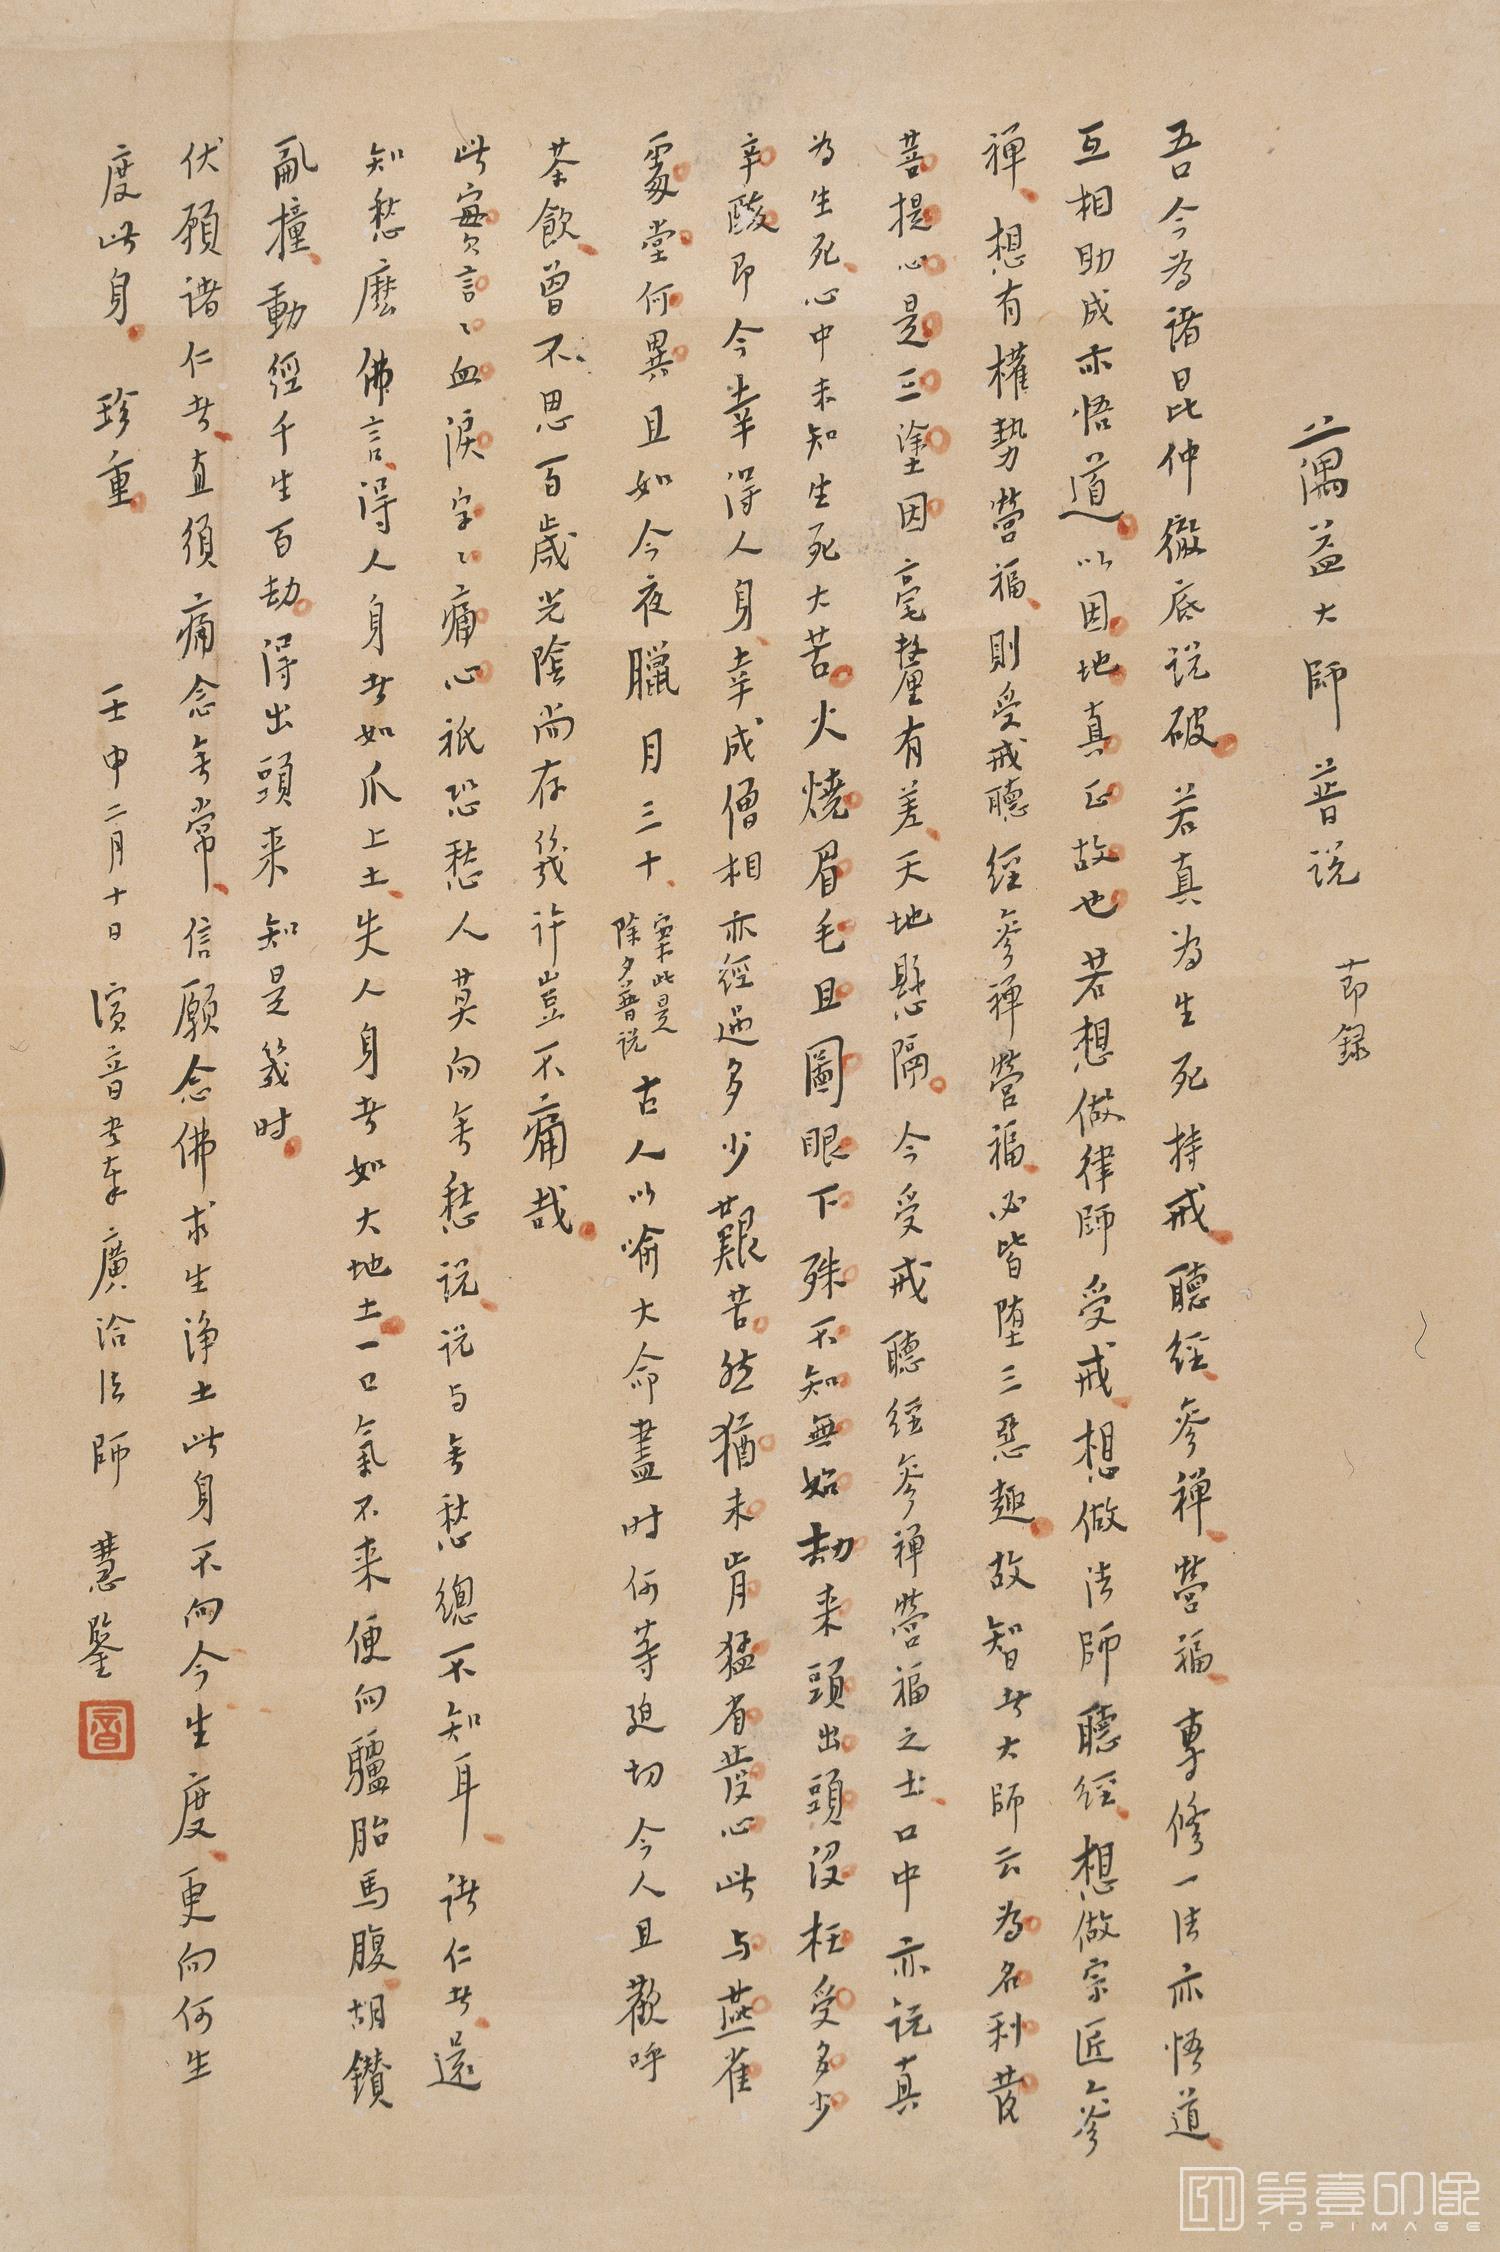 蕅益大師普說 節録
吾今為諸昆仲徹底說破若真為生死持戒聽經參禪營福專修一法亦悟道
互相助成亦悟道以因地真正故也若想做律師受戒想做法師聽經想做宗匠參
禪想有權勢營福則受戒聽經參禪營福必皆墮三惡趣故智者大師云為名利發
菩提心是三塗因毫釐有差天地懸隔今受戒聽經參禪營福之士口中亦說真
為生死心中未知生死大苦火燒眉毛且圖眼下殊不知無始劫來頭出頭沒枉受多少
辛酸即今幸得人身幸成僧相亦經過多少艱苦然猶未肯猛省發心此与燕雀
處堂何異且如今夜臘月三十
案此是
除夕普说
古人以喻大命盡时何等迫切今人且歡呼
茶飲曾不思百歲光陰尚存幾許豈不痛哉
此實言言血淚字字痛心祇恐愁人莫向無愁說說与無愁總不知耳 諸仁者還
知愁麽佛言得人身者如爪上土失人身者如大地土一口氣不来便向驢胎馬腹胡鑽
亂撞動經千生百劫得出頭来知是幾时
伏願諸仁者直須痛念無常信願念佛求生淨土此身不向今生度更向何生
度此身 珍重
壬申二月十日演音書奉廣洽法師 慧鑒
音
第壹印像
TOPIMAGE